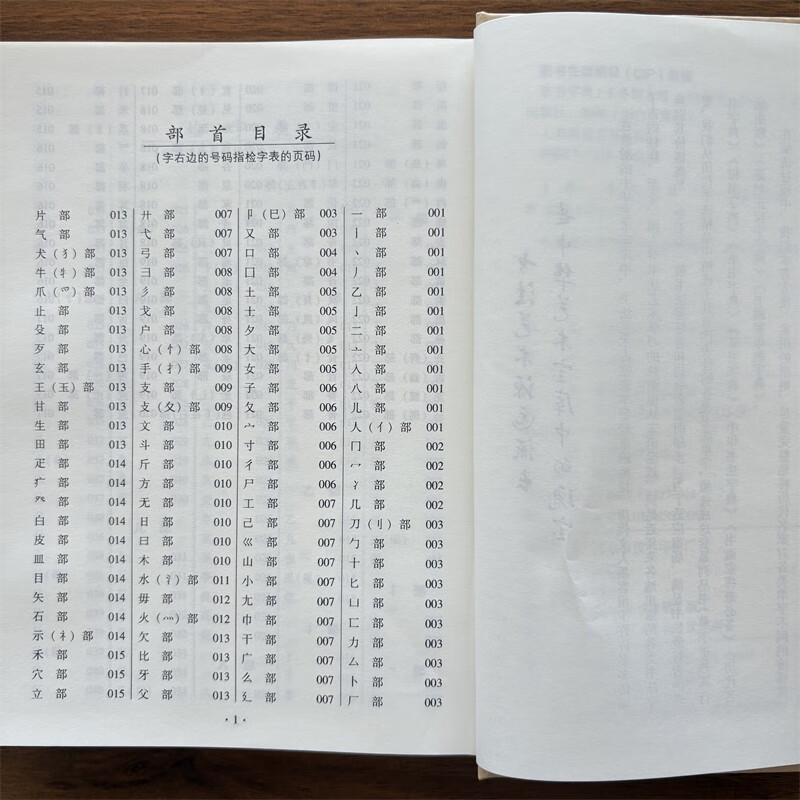 部首目录
(字右边的号码指检字表的页码)
一部 001
丨部 001
丶部 001
丿部 001
乙部 001
亅部 001
二部 001
亠部 001
人部 001
八部 001
儿部 001
人(亻)部 001
冂部 002
冖部 002
冫部 002
几部 002
刀(刂)部 003
勹部 003
十部 003
匕部 003
凵部 003
匚部 003
力部 003
厶部 003
卜部 003
厂部 003
卩(巳)部 003
又部 003
口部 004
囗部 004
土部 004
士部 004
夕部 005
大部 005
女部 005
子部 005
夂部 006
宀部 006
寸部 006
彳部 006
尸部 006
工部 007
己部 007
巛部 007
山部 007
小部 007
尢部 007
巾部 007
干部 007
广部 007
么部 007
廴部 007
廾部 007
弋部 007
弓部 007
彐部 008
彡部 008
戈部 008
户部 008
心(忄)部 008
手(扌)部 009
支部 009
攴(攵)部 009
文部 010
斗部 010
斤部 010
方部 010
无部 010
日部 010
曰部 010
木部 010
水(氵)部 011
毋部 012
火(灬)部 012
欠部 013
比部 013
牙部 013
父部 013
片部 013
气部 013
犬(犭)部 013
牛(牜)部 013
爪(爫)部 013
止部 013
殳部 013
歹部 013
玄部 013
王(玉)部 013
甘部 013
生部 013
田部 013
疋部 014
疒部 014
癶部 014
白部 014
皮部 014
皿部 014
目部 014
矢部 014
石部 014
示(礻)部 014
禾部 015
穴部 015
立部 015
·1·